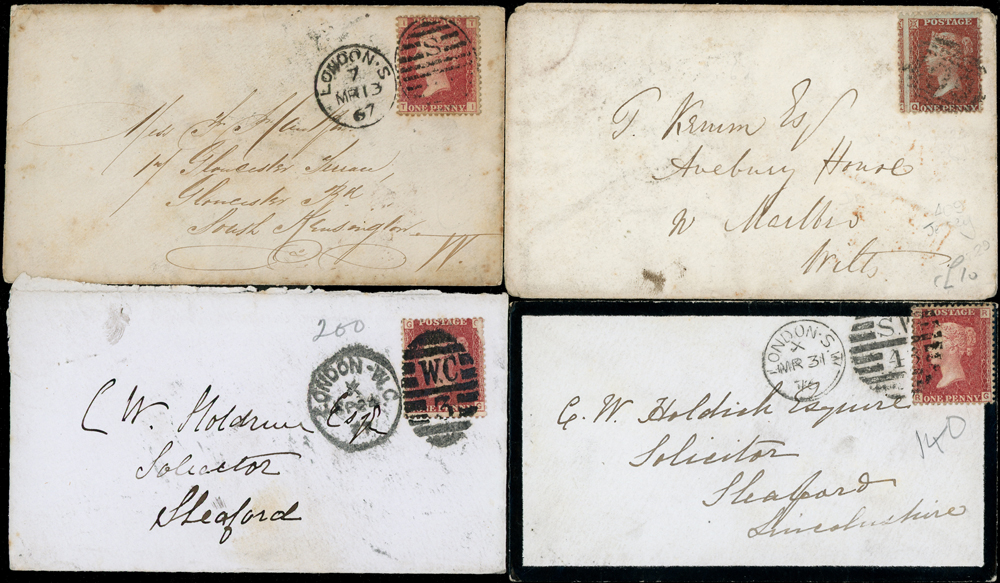 LONDON·S
7
MR 13
67
S
I T
T I
ONE PENNY
Gloucester
Gloucester Rd
South Kensington
W.
POSTAGE
ONE PENNY
T. Kemm Esq
Avebury House
Marlbro
Wilts
£10
200
LONDON·W.C
X
W.C
3
POSTAGE
C W. Esqr
Solicitor
Sleaford
LONDON·S.W
X
MR 31
S.W
4
POSTAGE
ONE PENNY
140
C. W. Holdich Esquire
Solicitor
Sleaford
Lincolnshire